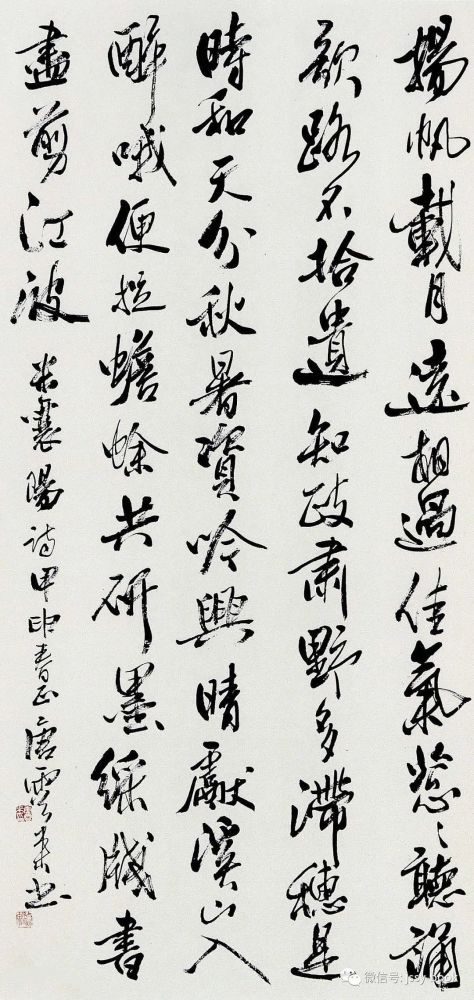 揚帆載月遠相過佳氣葱〻聽誦
歌路不拾遺知政肅野多滯穗是
時和天分秋暑資吟興晴獻溪山入
醉哦便捉蟾蜍共研墨綵牋書
盡剪江波 米襄陽詩甲申春正唐雲來書
微信号: jssy-book